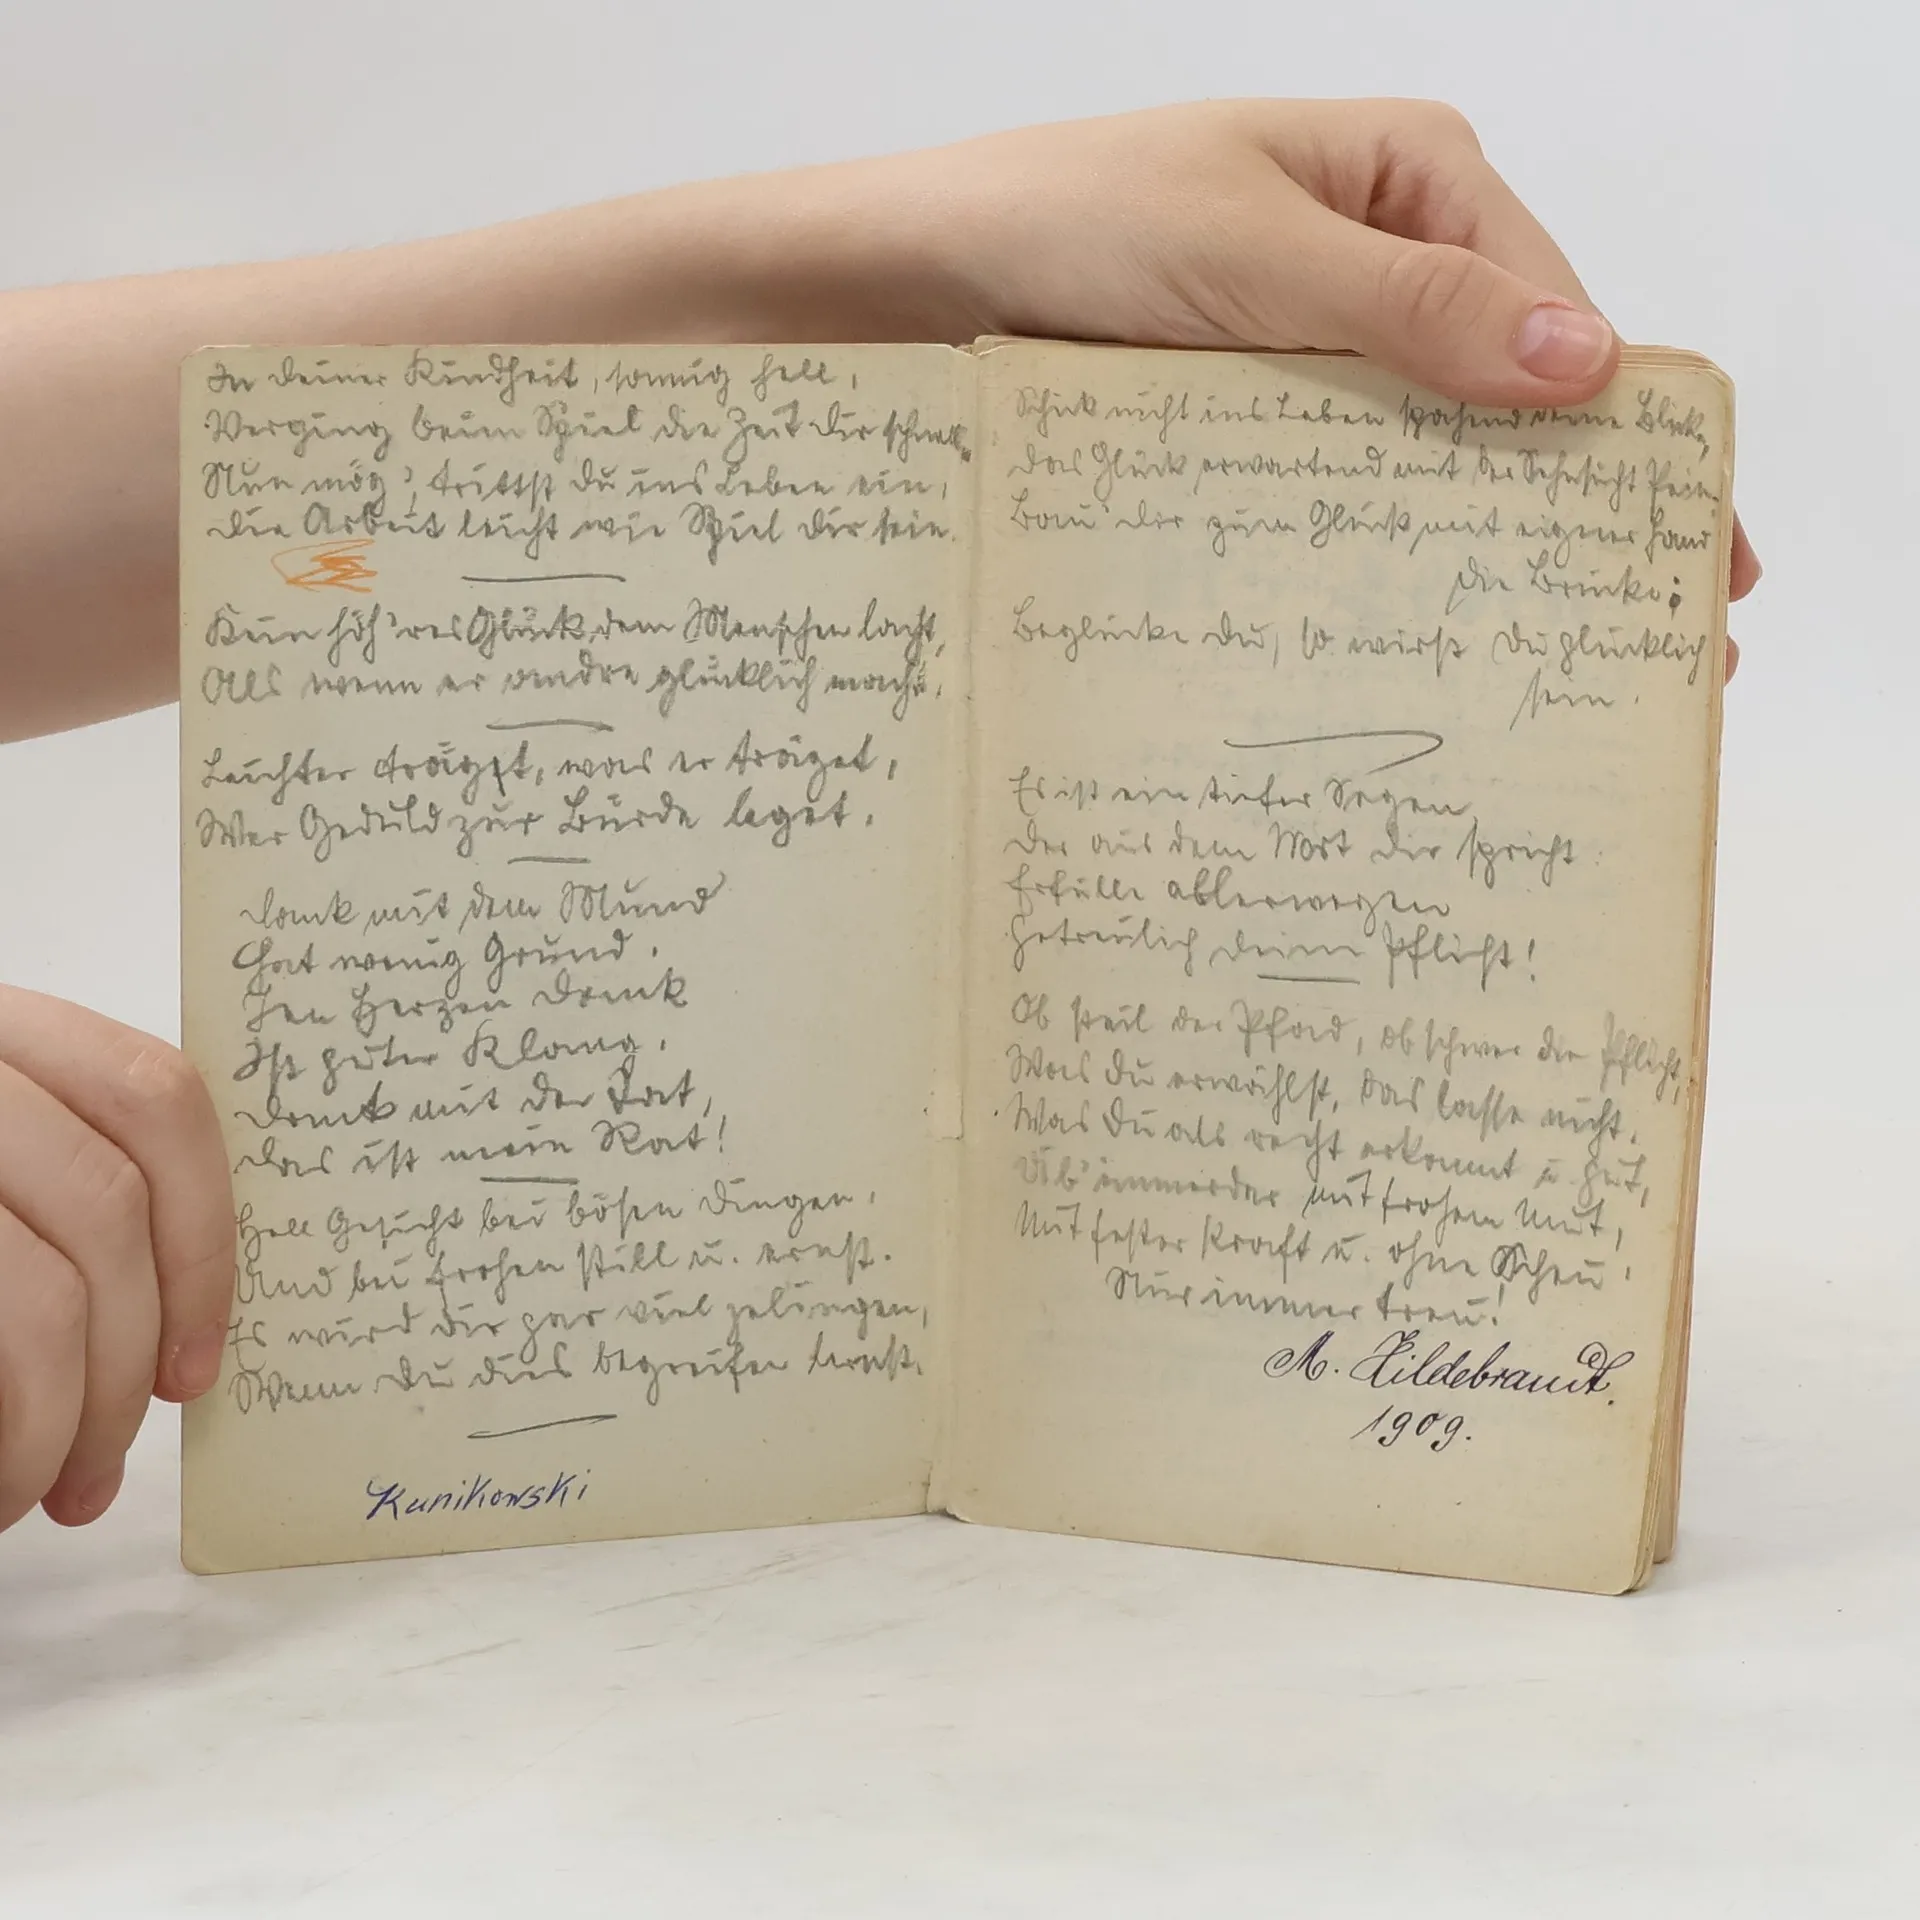 In deiner Kindheit, sonnig hell,
Verging beim Spiel die Zeit dir schnell.
Nun mög', trittst du ins Leben ein,
Die Arbeit leicht wie Spiel dir sein.
Kein höh'res Glück dem Menschen lacht,
Als wenn er andre glücklich macht.
Leichter träget, was er träget,
Wer Geduld zur Bürde leget.
Dank mit dem Mund
Hat wenig Grund.
Im Herzen Dank
Ist guter Klang.
Dank mit der Tat,
Das ist mein Rat!
Hell Gesicht bei bösen Dingen,
Und bei frohen still u. ernst.
Es wird dir gar viel gelingen,
Wenn du dies begreifen lernst.
Kunikowski
Schick nicht ins Leben spähend deine Blicke,
Das Glück erwartend mit der Sehnsucht Pein.
Bau' dir zum Glück mit eigner Hand
die Brücke;
Beglücke du, so wirst du glücklich
sein.
Es ist ein tiefer Segen,
Der aus dem Wort dir spricht:
Erfülle allerwegen
Getreulich deine Pflicht!
Ob steil der Pfad, ob schwer die Pflicht,
Was du erwählst, das lasse nicht.
Was du als recht erkannt u. gut,
Üb' immerdar mit frohem Mut,
Mit fester Kraft u. ohne Scheu,
Nur immer treu!
M. Hildebrandt.
1909.